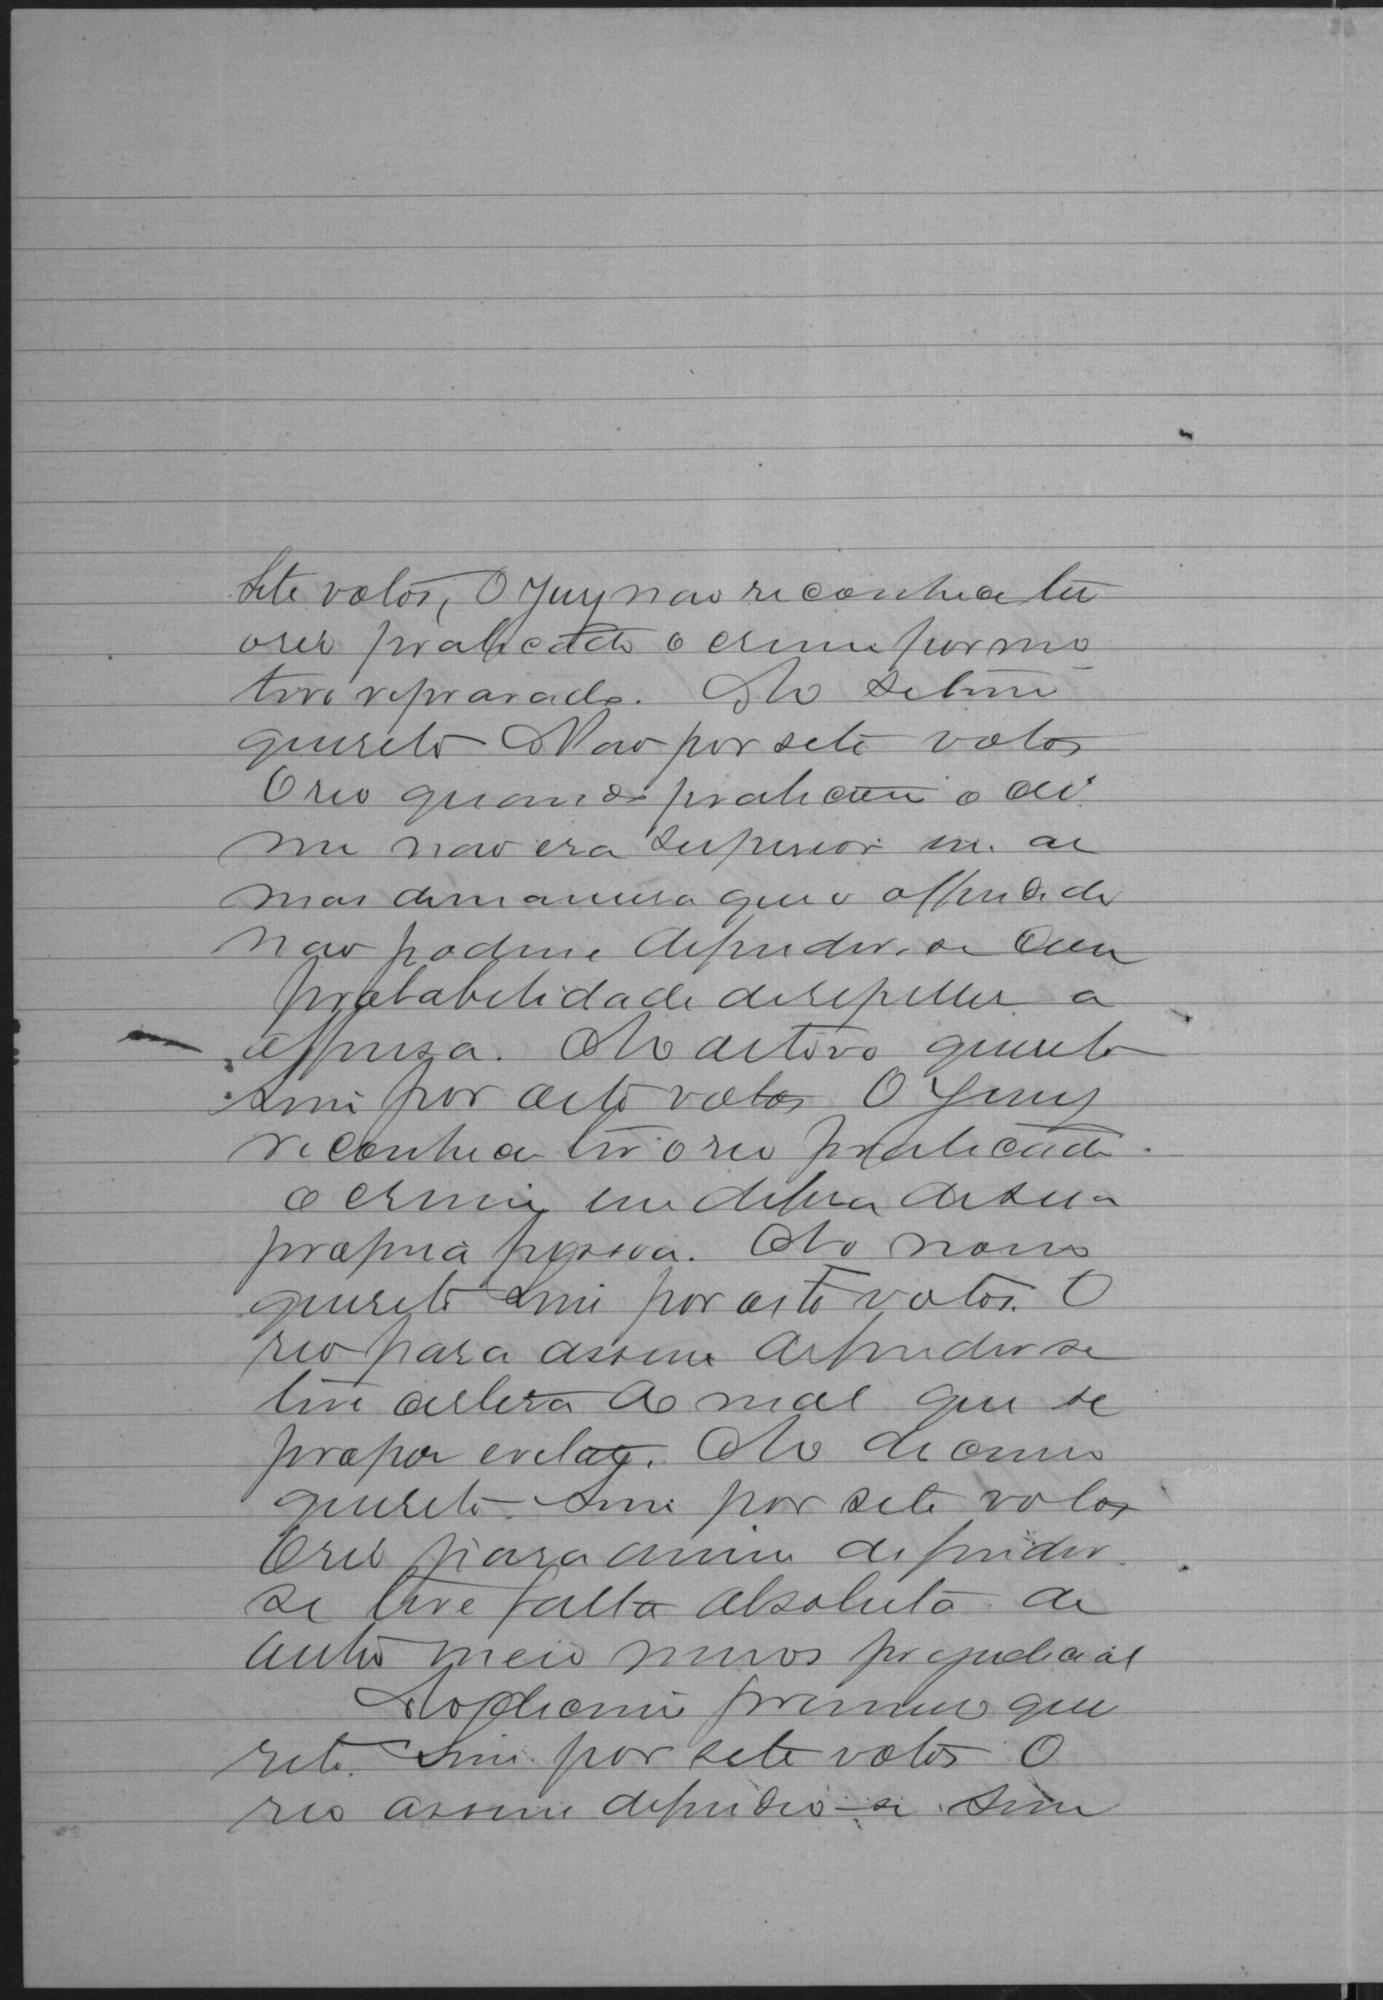 sete votos, O Jury nao reconhece ter
o reo praticado o crime por mo
tivo reprovado. Ao setimo
quesito Nao por sete votos
O reo quando praticou o cri
me nao era superior em ar
mas de maneira que o offendido
nao podesse defender-se com
probabilidade de repellir a
offensa. Ao oitavo quesito
sim por oito votos O Jury
reconhece ter o reo praticado
o crime em defesa de sua
propria pessoa. Ao nono
quesito sim por oito votos. O
reo para assim defender se
teve certeza do mal que se
propoz evitar. Ao decimo
quesito sim por sete votos
O reo para assim defender
se teve falta absoluta de
outro meio menos prejudicial
Ao decimo primeiro que
sito. Sim por sete votos O
reo assim defendeo-se sem